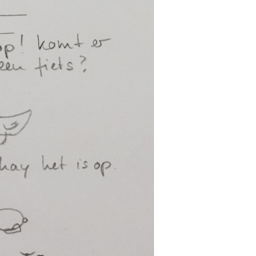 op! komt er
een fiets?
hay het is op.